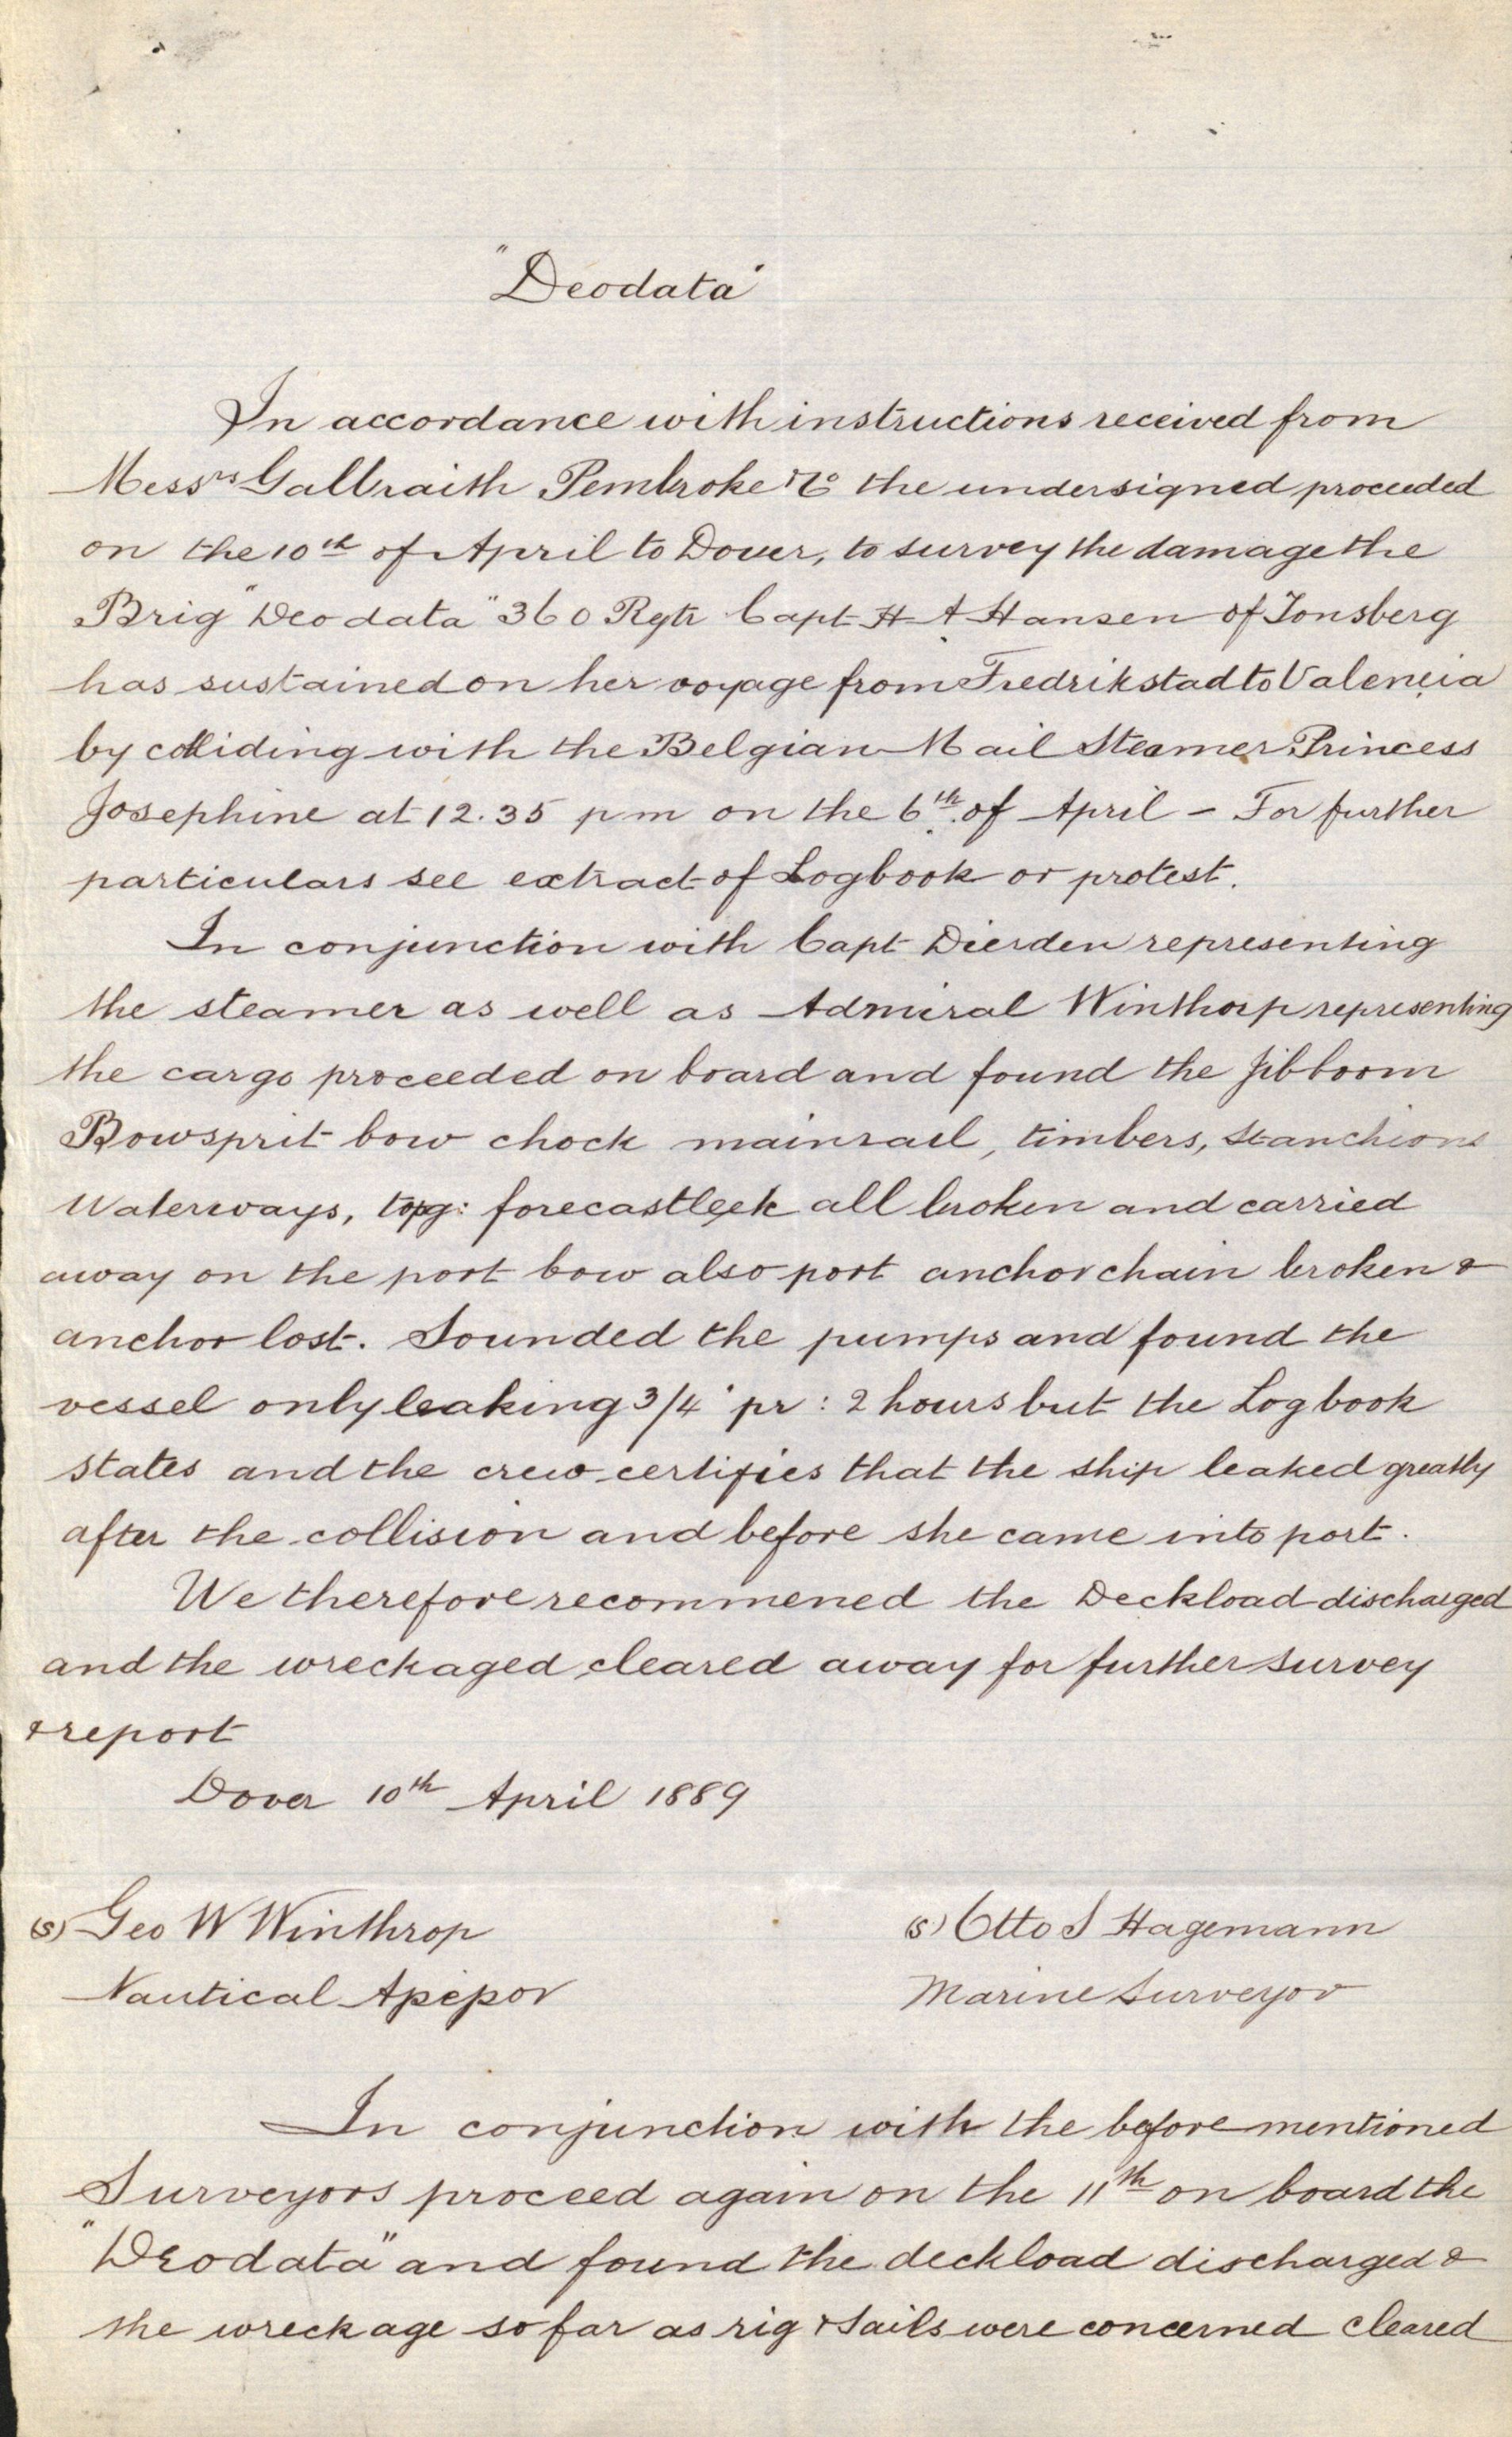 "Deodata"
In accordance with instructions received from
Messrs Galbraith Pembroke & Co the undersigned proceeded
on the 10th of April to Dover, to survey the damage the
Brig "Deodata" 360 Rgtr Capt H A Hansen of Tonsberg
has sustained on her voyage from Fredrikstad to Valencia
by colliding with the Belgian Mail Steamer Princess
Josephine at 12.35 pm on the 6th of April – For further
particulars see extract of Logbook or protest.
In conjunction with Capt Dierden representing
the steamer as well as Admiral Winthorp representing
the cargo proceeded on board and found the Jibboom
Bowsprit bow chock mainrail, timbers, stanchions
Waterways, all broken and carried
away on the port bow also port anchor chain broken &
anchor lost. Sounded the pumps and found the
vessel only leaking 3/4" pr: 2 hours but the Logbook
states and the crew certifies that the ship leaked greatly
after the collision and before she came into port.
We therefore recommened the Deckload discharged
and the wreckaged cleared away for further survey
& report
Dover 10th April 1889
(s) Geo W Winthrop (s) Otto S Hagemann
Nautical Marine Surveyor
In conjunction with the before mentioned
Surveyors proceed again on the 11th on board the
"Deodata" and found the deckload discharged &
the wreckage so far as rig & sails were concerned cleared